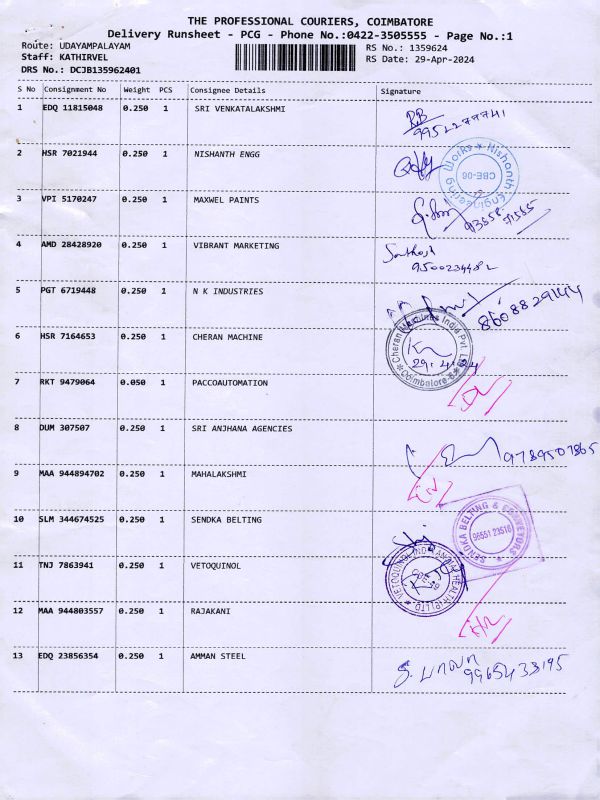 THE PROFESSIONAL COURIERS, COIMBATORE
Delivery Runsheet - PCG - Phone No.:0422-3505555 - Page No.:1
Route: UDAYAMPALAYAM
RS No.: 1359624
Staff: KATHIRVEL
RS Date: 29-Apr-2024
DRS No.: DCJB135962401
S No Consignment No Weight PCS Consignee Details Signature
1 EDQ 11815048 0.250 1 SRI VENKATALAKSHMI
2 HSR 7021944 0.250 1 NISHANTH ENGG
Nishanth Engineering Works CBE-06
3 VPI 5170247 0.250 1 MAXWEL PAINTS
4 AMD 28428920 0.250 1 VIBRANT MARKETING
Santhosh
5 PGT 6719448 0.250 1 N K INDUSTRIES
8608829144
6 HSR 7164653 0.250 1 CHERAN MACHINE
Cheran Machines India Pvt. Ltd. Coimbatore-6
29.4.24
7 RKT 9479064 0.050 1 PACCOAUTOMATION
8 DUM 307507 0.250 1 SRI ANJHANA AGENCIES
9789507865
9 MAA 944894702 0.250 1 MAHALAKSHMI
10 SLM 344674525 0.250 1 SENDKA BELTING
SENDKA BELTING & CONVEYORS 96551 23516
11 TNJ 7863941 0.250 1 VETOQUINOL
VETOQUINOL INDIA ANIMAL HEALTH (P) LTD
12 MAA 944803557 0.250 1 RAJAKANI
13 EDQ 23856354 0.250 1 AMMAN STEEL
9965433195